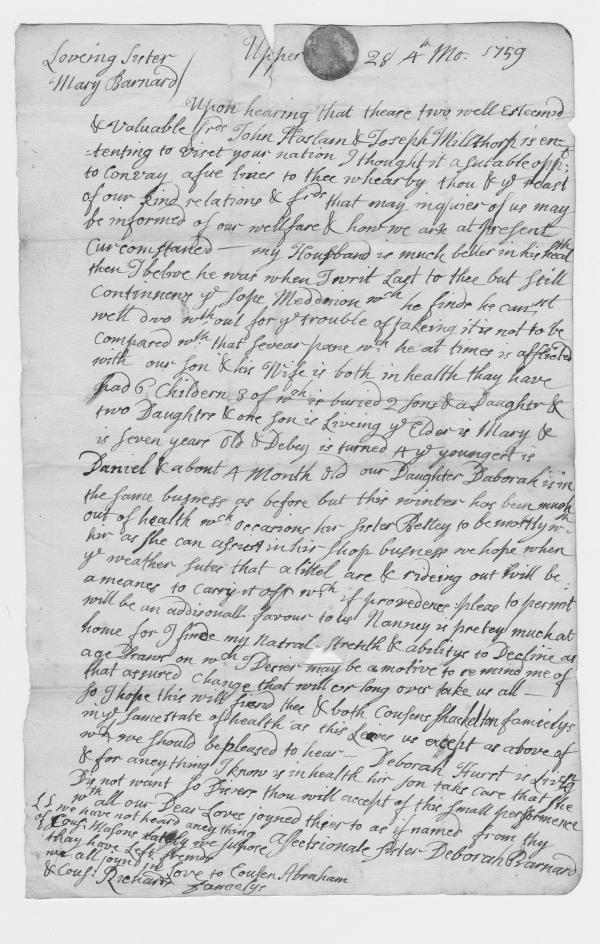 Loveing Sister Upper 28 4th Mo. 1759
Mary Barnard
Upon hearing that thease two well Esteemd
& Valuable frds John Haslam & Joseph Millthorp is en=
=tenting to Viset your nation I thought it a sutable oppo;
to Convay a fue lines to thee whearby thou & ye reast
of our kind relations & frds that may inquier of us may
be informed of our wellfare & how we are at Present
Curcomstancd — my Housband is much better in his healt
then I beleve he was when I writ Last to thee but still
Continueus ye sope Meddinon wch he finds he cannot
well dwo without for ye trouble of takeing it is not to be
Compared wth that sevear pane wch he at times is afflicted
with our son & his Wife is both in health thay have
had 6 Childern 3 of wch is buried 2 sons & a Daughter &
two Daughtrs & one son is Liveing ye Elder is Mary &
is seven years old & Debey is turned 4 ye youngest is
Daniel & about 4 Month old our Daughter Daborah is in
the same busness as before but this winter has been much
out of health wch occasions har sister Betley to be mostly wth
hir as she can assist in hir shop busness we hope when
ye weather sutes that a littel are & rideing out will be
a means to Carry it off wch if provedence pleas to permit
will be an addisonall favour to us Nanney is pretey much at
home for I finde my natral strenth & abilitys to Decline as
age Draws on wch I Desier may be a motive to remind me of
that assured Change that will er long over take us all —
so I hope this will fiend thee & both Cousens Shackelton famielys
in ye same state of health as this Leves us except as above of
wch we should be pleased to hear — Deborah Hurst is Liveing
& for aneything I know is in health hir son take care that she
Dis not want so Disiers thou will accept of this small performence
wth all our Dear Loves joyned thier to as if named from thy
affectionate sister Deborah Barnard
we have not heard aneything
of Cous. Masons lately we supose
thay have Left
we all joyn in Love to Cousen Abraham
& Cous. Richard Famcelys